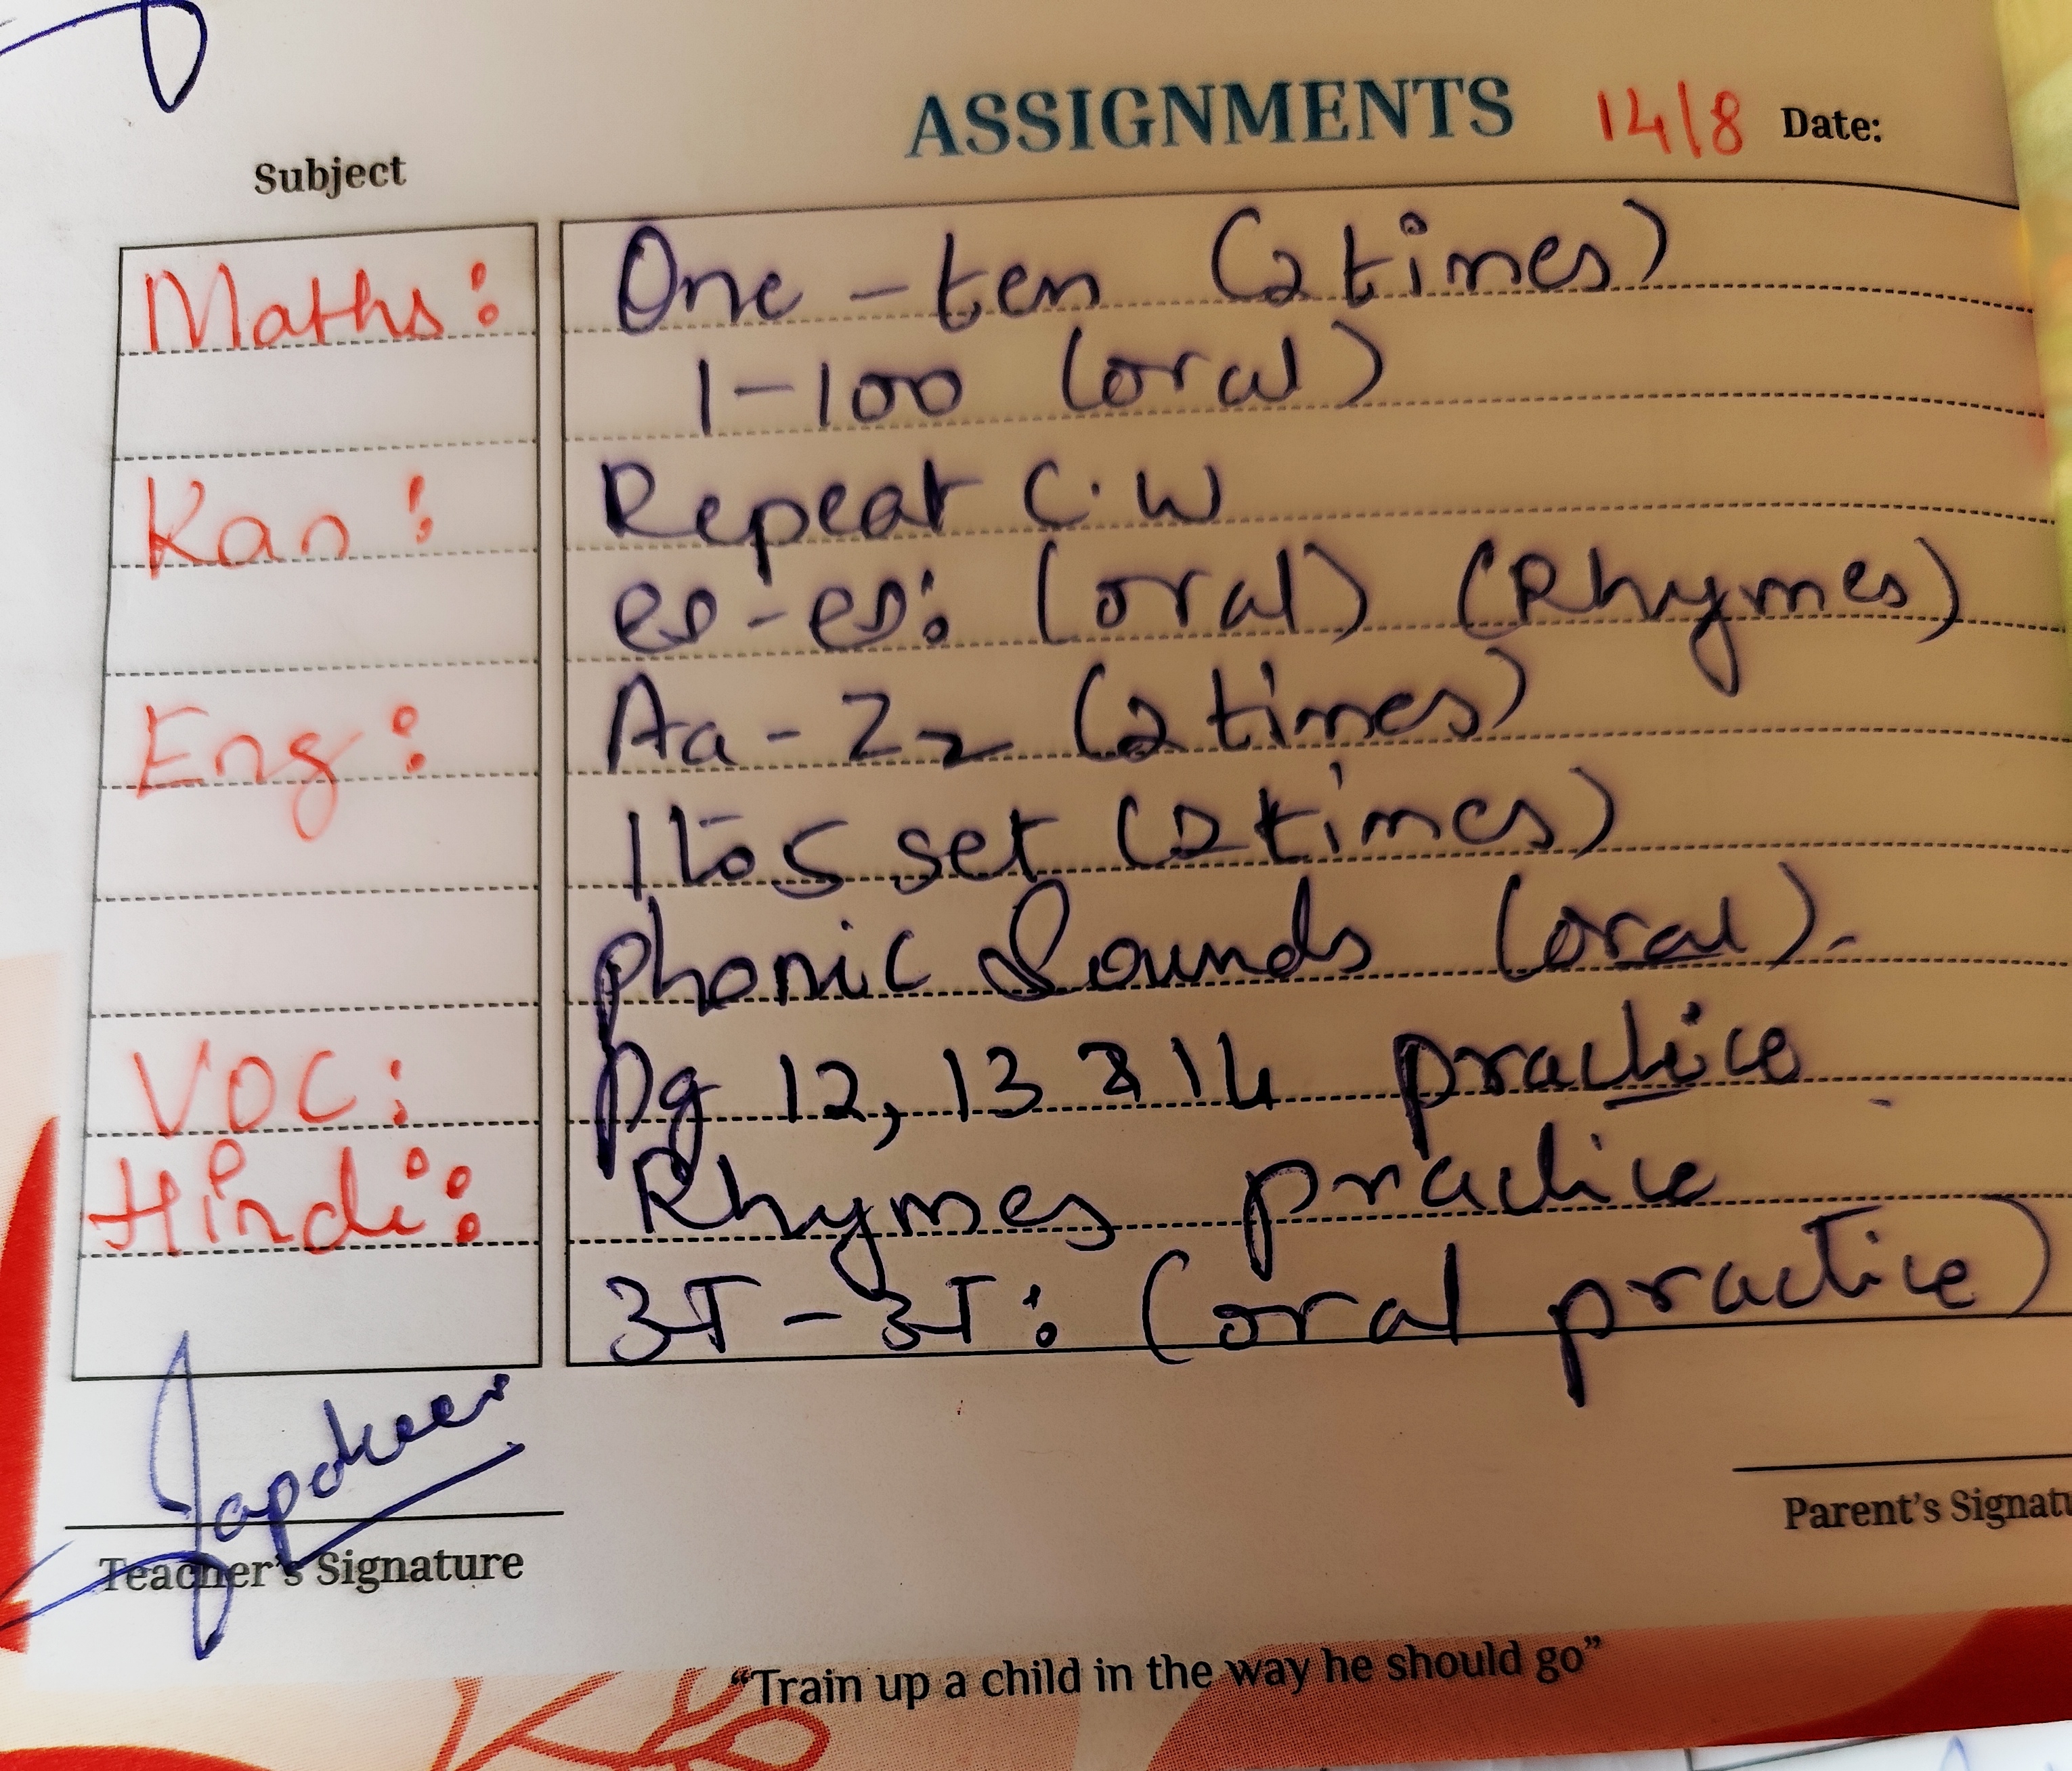 ASSIGNMENTS 14/8 Date:
Subject
Maths: One - ten (2 times)
1-100 (oral)
Kan: Repeat C.W
ಅ-ಅಃ (oral) (Rhymes)
Eng: Aa - Zz (2 times)
1 to 5 set (2 times)
phonic Sounds (oral).
VOC: pg 12, 13 & 14 practice
Hindi: Rhymes practice
अ - अः (oral practice)
Parent's
Teacher's Signature
"Train up a child in the way he should go"